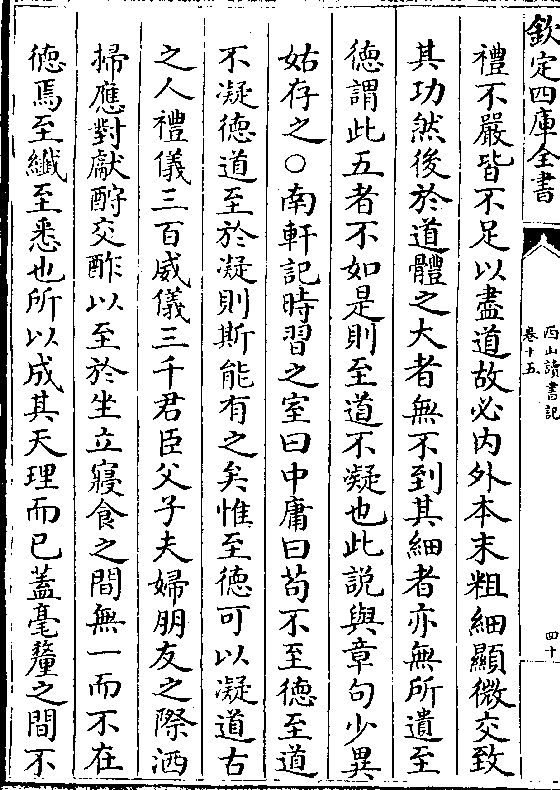 欽定四庫全書
西山讀書記
卷十五
四十
禮不嚴皆不足以盡道故必内外本末粗細顯微交致
其功然後於道體之大者無不到其細者亦無所遺至
德謂此五者不如是則至道不凝也此説與章句少異
姑存之○南軒記時習之室曰中庸曰苟不至德至道
不凝德道至於凝則斯能有之矣惟至德可以凝道古
之人禮儀三百威儀三千君臣父子夫婦朋友之際洒
掃應對獻酧交酢以至於坐立寢食之間無一而不在
德焉至纎至悉也所以成其天理而已蓋毫釐之間不